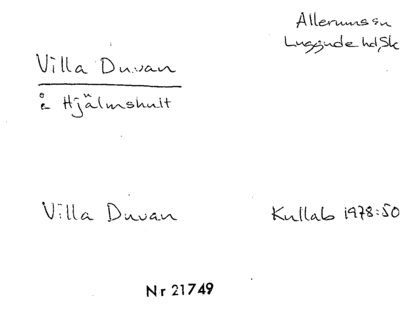 Allerums sn
Luggude hd, Sk
Villa Duvan
å Hjälmshult
Villa Duvan
Kullab 1978:50
Nr 21749